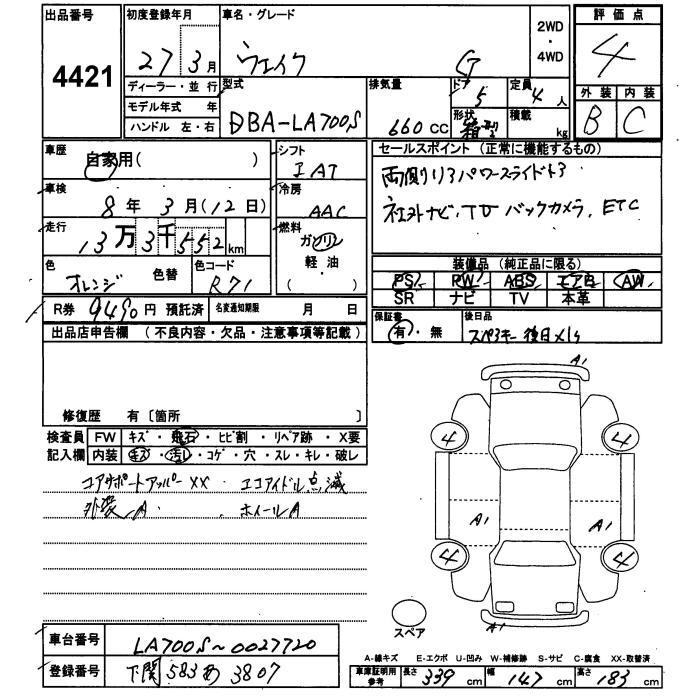 出品番号
4421
初度登録年月
27 3月
車名・グレード
ウェイク G
2WD
・
4WD
評価点
4
外装 内装
B C
ディーラー・並行
モデル年式 年
ハンドル 左・右
型式
DBA-LA700S
排気量
660 CC
ドア
5
形状
箱型
定員
4人
積載
kg
車歴
自家用( )
シフト
IAT
車検
8年3月(12日)
冷房
AAC
走行
13万3千552km
燃料
ガソリン
軽・油
( )
色
オレンジ
色替
色コード
R71
R券 9490円 預託済
名変通知期限 月 日
セールスポイント (正常に機能するもの)
両側リアパワースライドドア
社外ナビ、TV バックカメラ、ETC
装備品 (純正品に限る)
PS PW ABS エアB AW
SR ナビ TV 本革
保証書
有・無
後日品
スペアキー 後日メイン
出品店申告欄 (不良内容・欠品・注意事項等記載)
修復歴 有〔箇所 〕
検査員 FW キズ・飛石・ヒビ割・リペア跡・X要
記入欄 内装 キズ・汚レ・コゲ・穴・スレ・キレ・破レ
コアサポートアッパーXX エコアイドル点滅
外装A ホイールA
A1
4 4
A1 A1
4 4
A1
スペア
車台番号 LA700S~0027720
登録番号 下関 583 あ 3807
A-線キズ E-エクボ U-凹み W-補修跡 S-サビ C-腐食 XX-取替済
車庫証明用参考 長さ 339 cm 幅 147 cm 高さ 183 cm